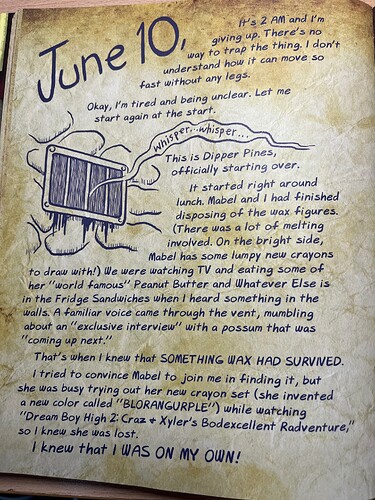 June 10,
It's 2 AM and I'm
giving up. There's no
way to trap the thing. I don't
understand how it can move so
fast without any legs.
Okay, I'm tired and being unclear. Let me
start again at the start.
whisper...whisper...
This is Dipper Pines,
officially starting over.
It started right around
lunch. Mabel and I had finished
disposing of the wax figures.
(There was a lot of melting
involved. On the bright side,
Mabel has some lumpy new crayons
to draw with!) We were watching TV and eating some of
her "world famous" Peanut Butter and Whatever Else is
in the Fridge Sandwiches when I heard something in the
walls. A familiar voice came through the vent, mumbling
about an "exclusive interview" with a possum that was
"coming up next."
That's when I knew that SOMETHING WAX HAD SURVIVED.
I tried to convince Mabel to join me in finding it, but
she was busy trying out her new crayon set (she invented
a new color called "BLORANGURPLE") while watching
"Dream Boy High 2: Craz & Xyler's Bodexcellent Radventure,"
so I knew she was lost.
I knew that I WAS ON MY OWN!